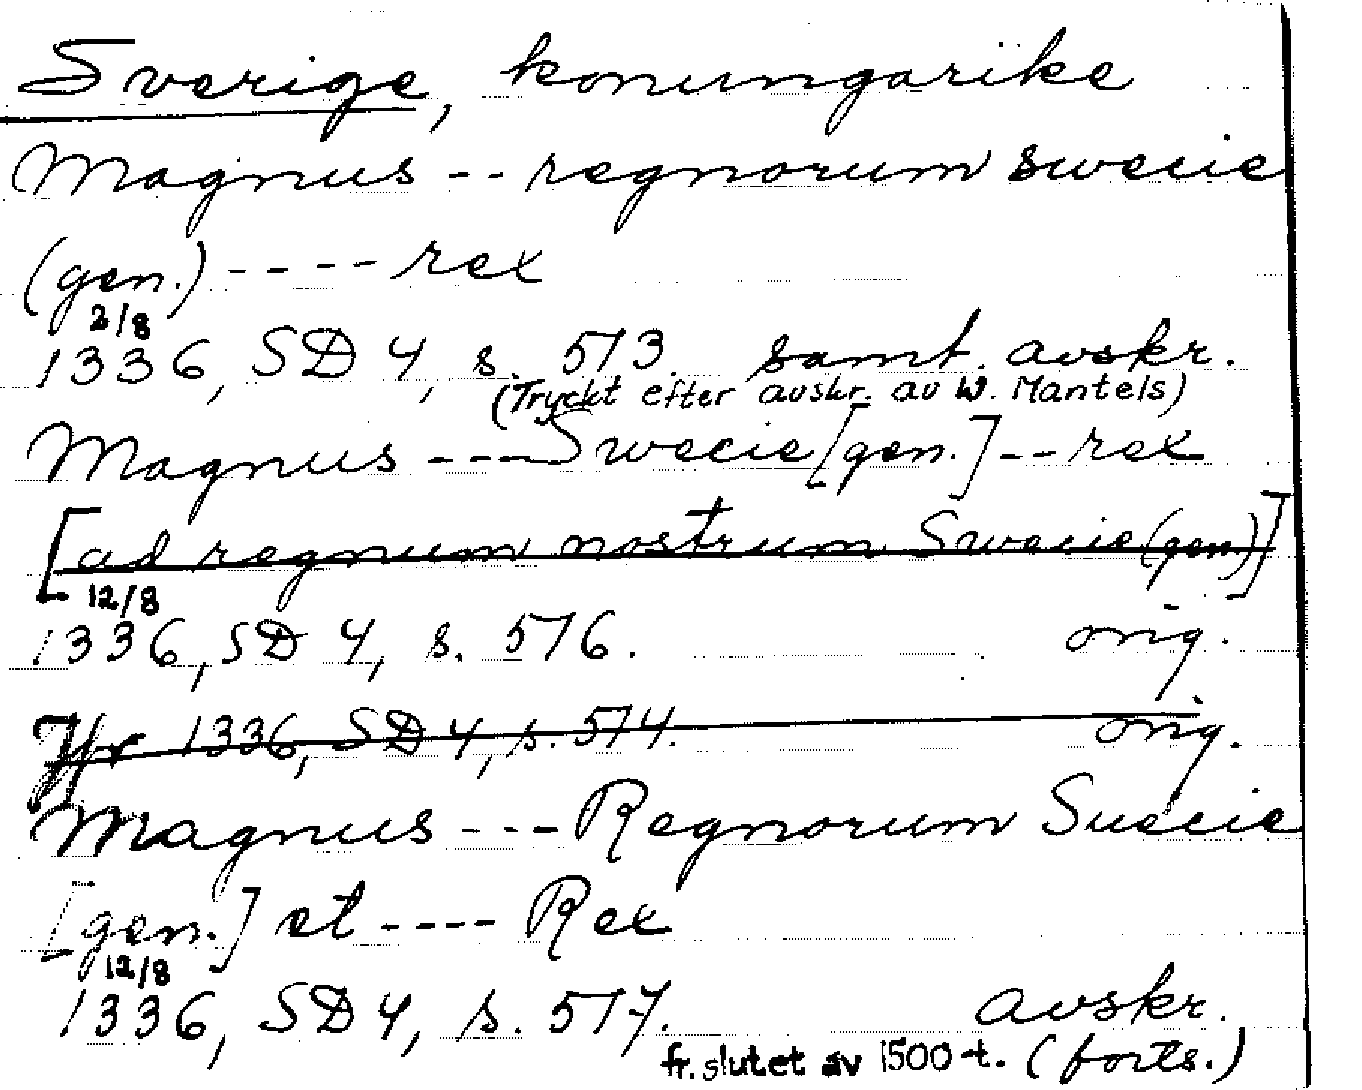 Sverige, konungarike
Magnus -- regnorum swecie
(gen.) ---- rex
2/8
1336, SD 4, s. 513. samt. avskr.
(Tryckt efter avskr. av W. Mantels)
Magnus --- Swecie [gen.] -- rex
[ad regnum nostrum Swecie (gen)]
12/8
1336, SD 4, s. 516. orig.
Jfr 1336, SD 4, s. 514. orig.
Magnus --- Regnorum Suecie
[gen.] et ---- Rex
12/8
1336, SD 4, s. 517. avskr.
fr. slutet av 1500-t. (forts.)